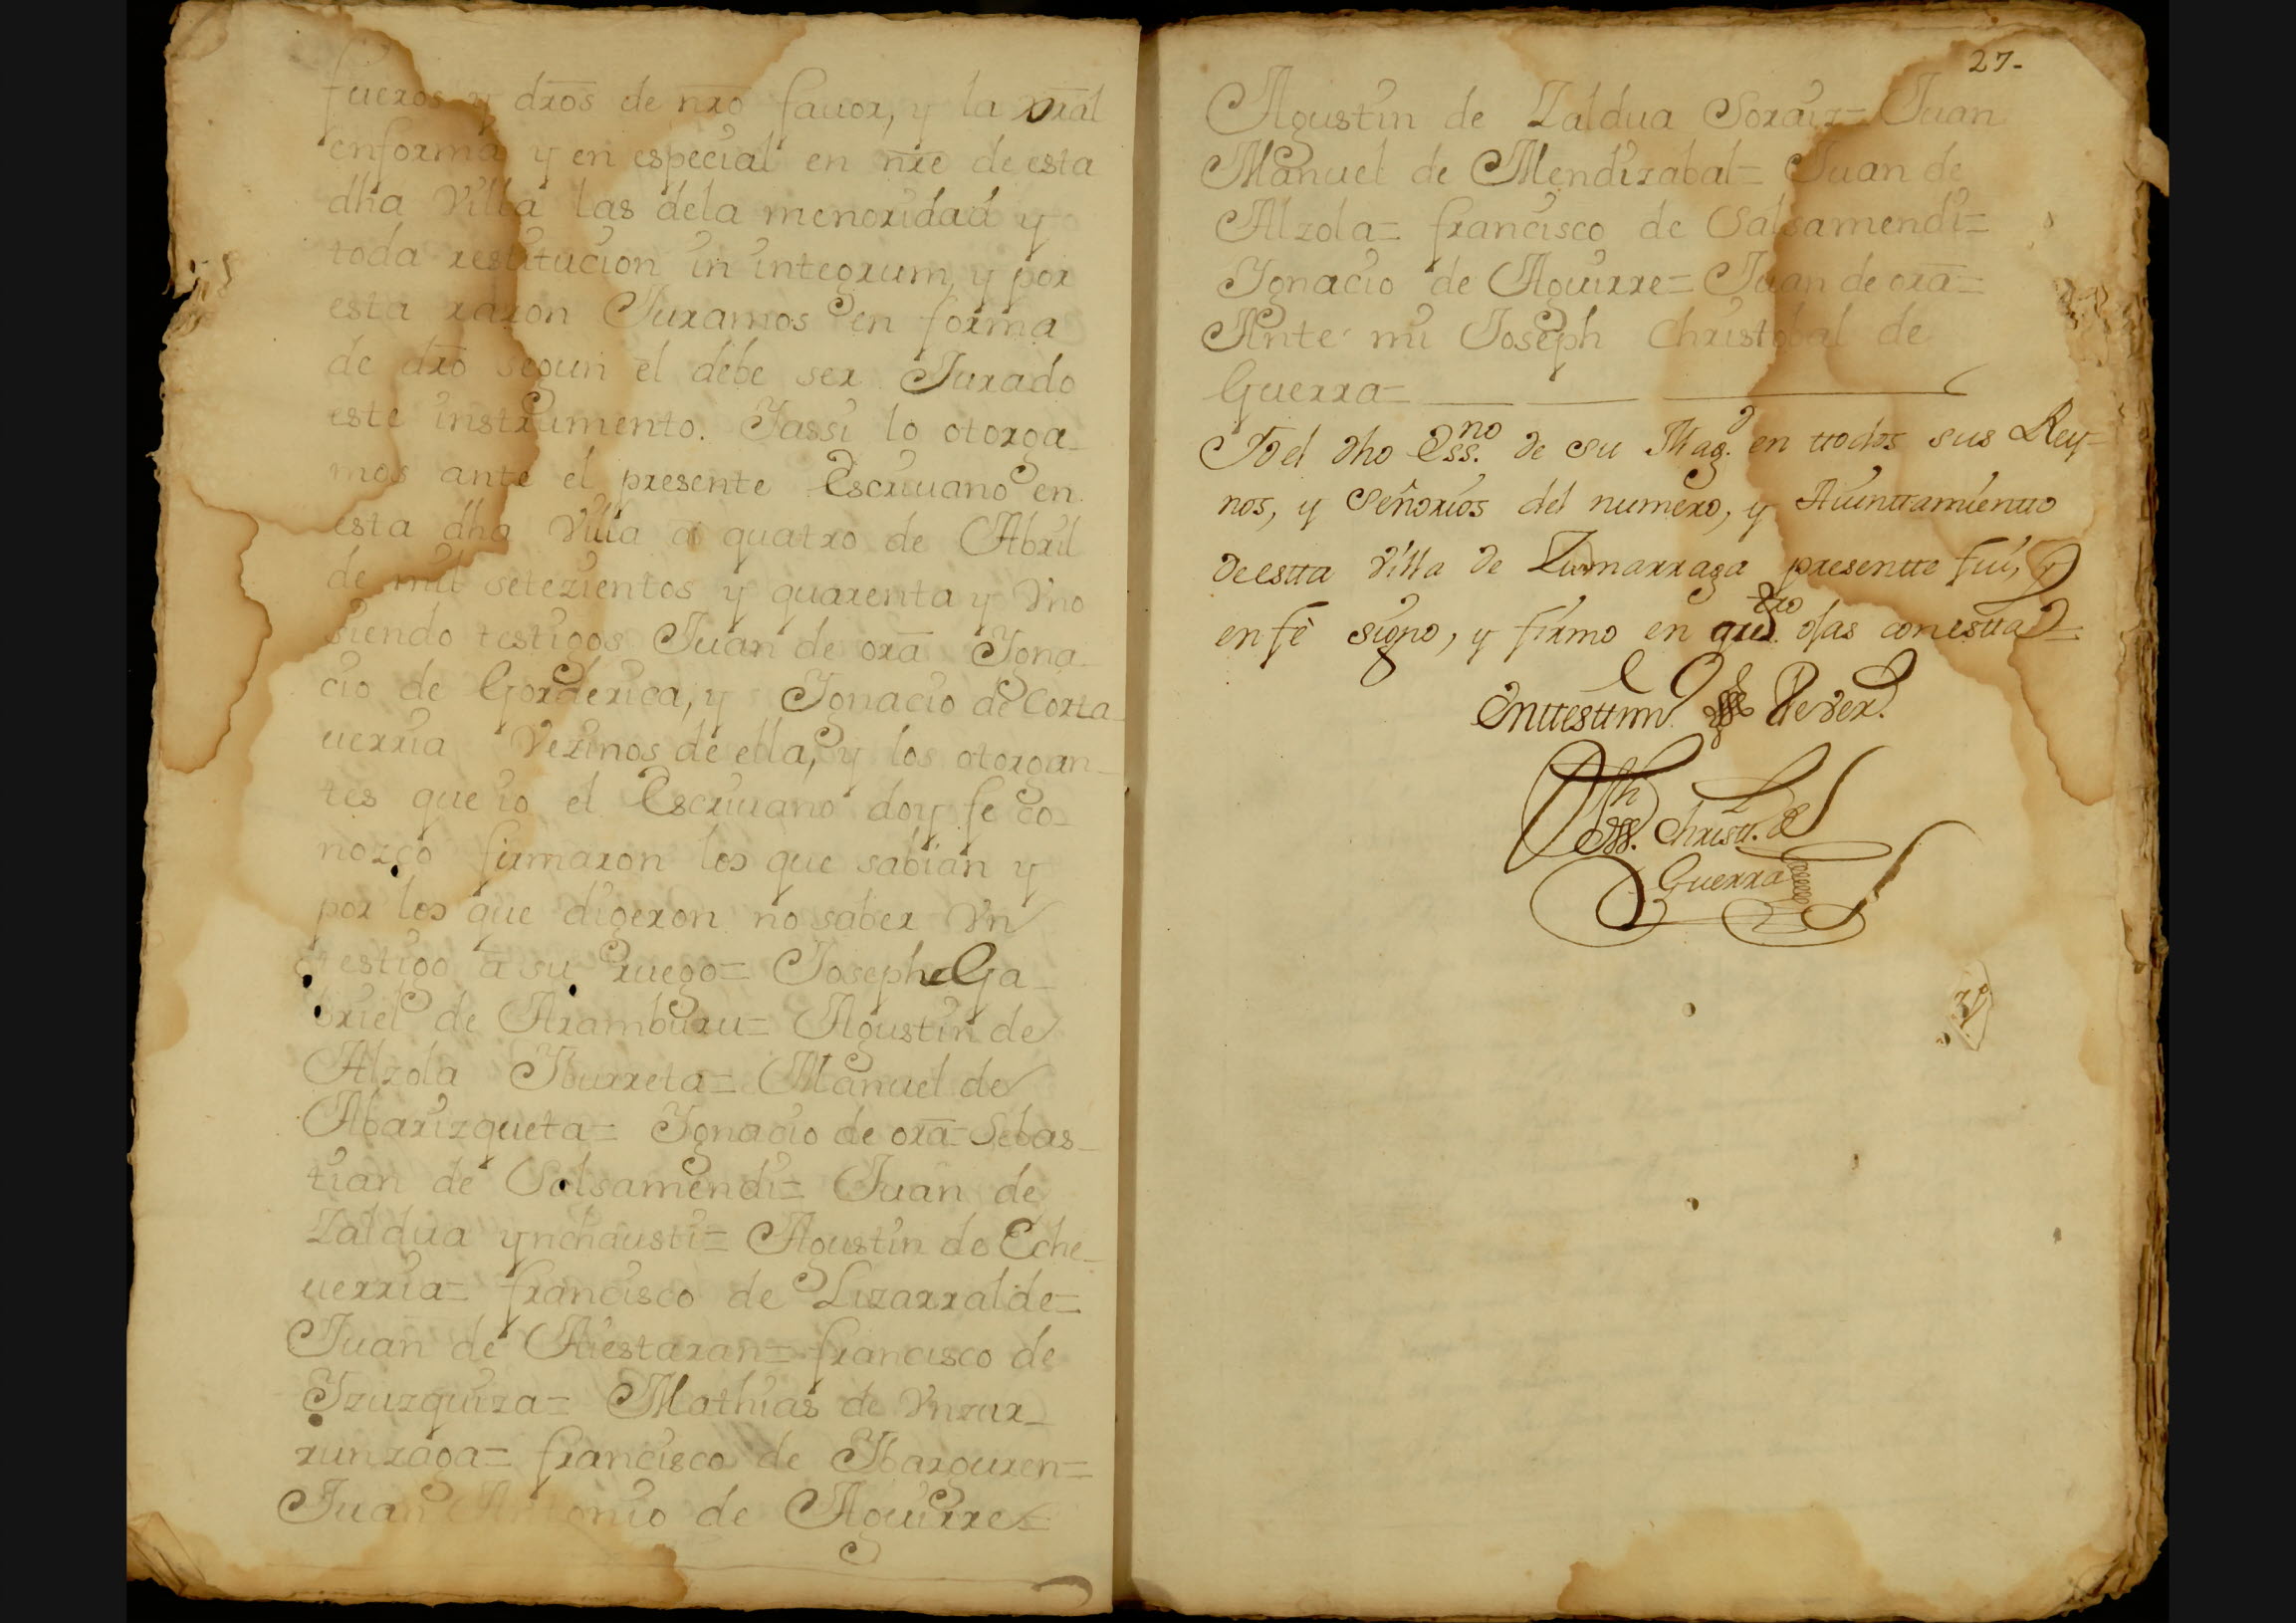 fueros y dros de nro fauor, y la gral
enforma y en especial en nre de esta
dha Villa las dela menoridad y
toda restitucion in integrum, y por
esta razon Juramos en forma
de dro segun el debe ser Jurado
este instrumento. Jassi lo otorga_
mos ante el presente Escriuano en
esta dha Villa a quatro de Abril
de mil setezientos y quarenta y Vno
siendo testigos Juan de ora Igna_
cio de Gorderica, y Ignacio de Corta_
uerria Vezinos de ella, y los otorgan_
tes que io el Escriuano doy fe co_
nozco firmaron los que sabian y
por los que digeron no saber Vn
testigo a su ruego= Joseph Ga_
briel de Aramburu= Agustin de
Alzola Iburreta= Manuel de
Abarizqueta= Ignacio de ora= Sebas_
tian de Salsamendi= Juan de
Zaldua ynchausti= Agustin de Eche_
uerria= francisco de Lizarralde=
Juan de Aiestaran= francisco de
Izuzquiza= Mathias de Vnzur_
runzaga= francisco de Ibarguren=
Juan Antonio de Aguirre=
27-
Agustin de Zaldua Soraiz= Juan
Manuel de Mendizabal= Juan de
Alzola= francisco de Salsamendi=
Ignacio de Aguirre= Juan de ora=
Ante mi Joseph Christobal de
Guerra=
Io el dho Ess.no de su Mag.d en ttodos sus Rey=
nos, y Señorios del numero, y Aiunttamientto
de estta Villa de Zumarraga presentte fui, y
en fè signo, y firmo en qutro ojas con estta=
En ttesttim.o de Verd.
Jph Christt. de
Guerra